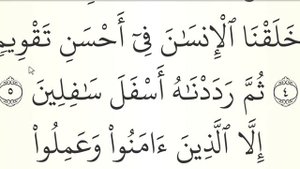 خَلَقْنَا ٱلْإِنسَٰنَ فِىٓ أَحْسَنِ تَقْوِيمٍ
٤ ثُمَّ رَدَدْنَٰهُ أَسْفَلَ سَٰفِلِينَ ٥
إِلَّا ٱلَّذِينَ ءَامَنُوا۟ وَعَمِلُوا۟